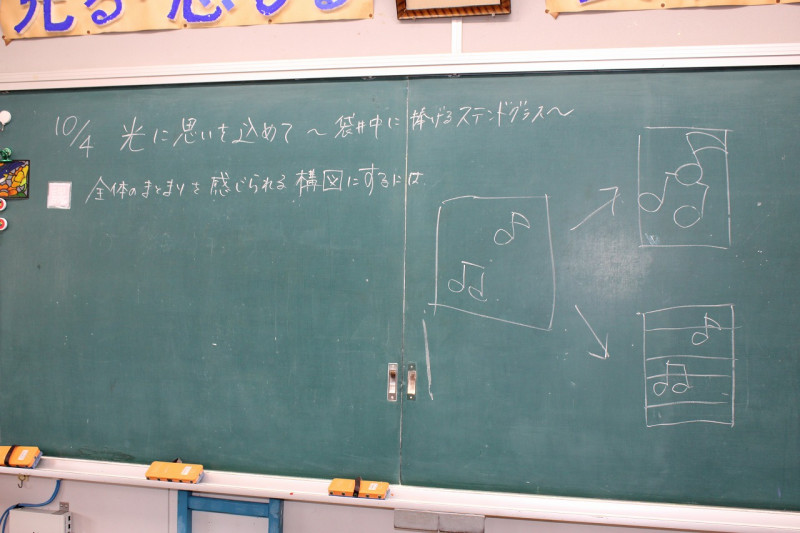 光る 感じる
10/4 光に思いを込めて～袋井中に捧げるステンドグラス～
全体のまとまりを感じられる構図にするには